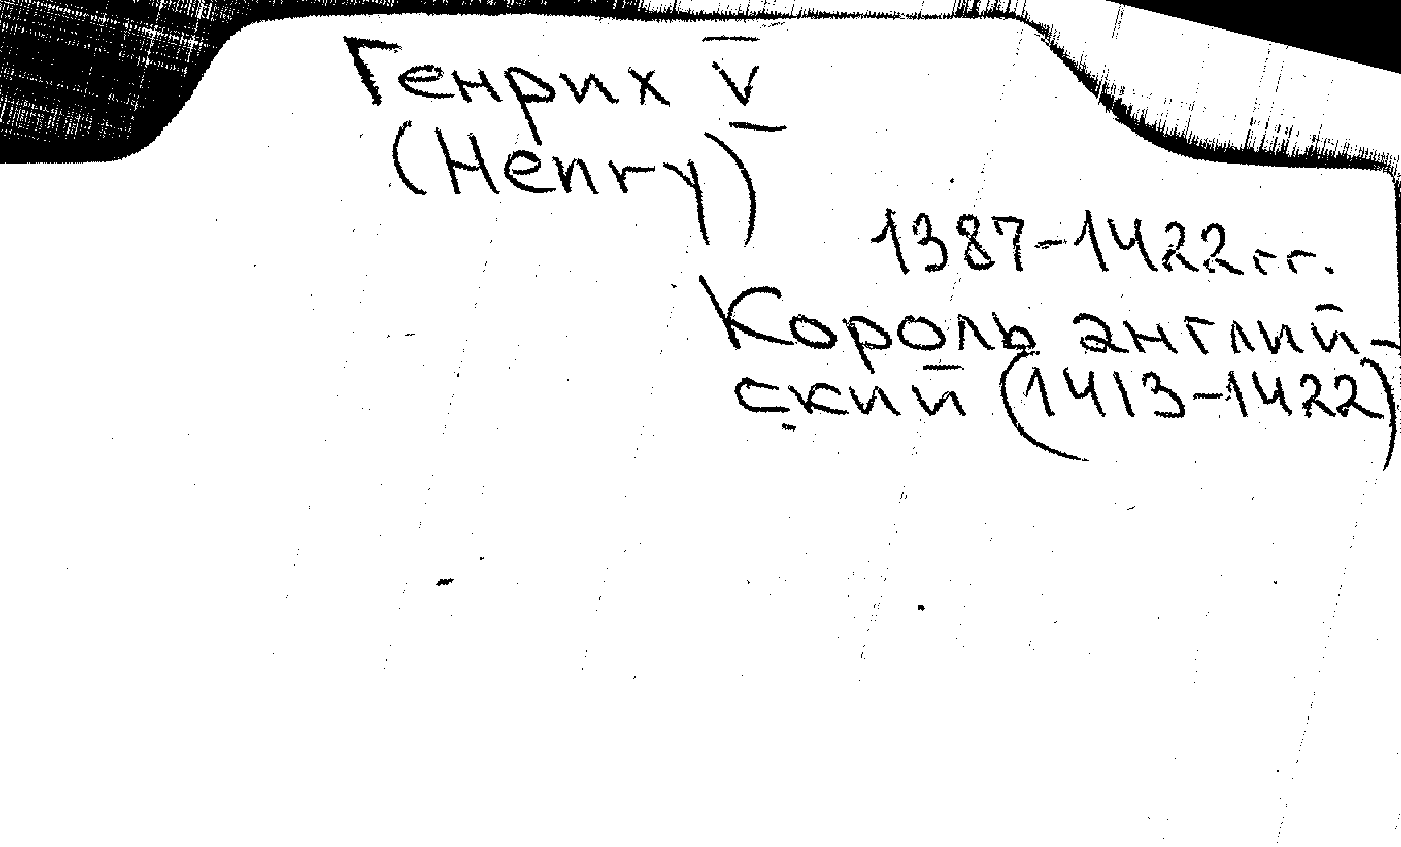 Генрих V
(Henry)
1387-1422гг.
Король англий-
ский (1413-1422)